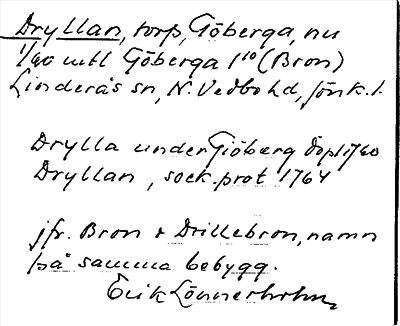 Dryllan, torp, Göberga, nu
1/40 mtl Göberga 1¹⁰ (Bron)
Linderås sn, N. Vedbo hd, Jönk. l.
Drylla under Giöberg döpl 1760
Dryllan, sock.prot 1764
jfr. Bron & Drillebron, namn
på samma bebygg.
Erik Lönnerholm